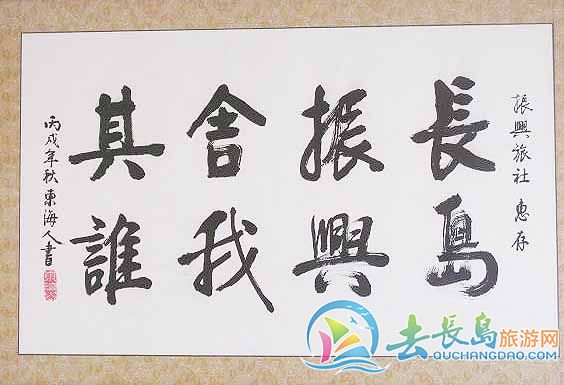 振興旅社 惠存
長島
振興
舍我
其誰
丙戌年秋東海人書
去長島旅游网
QUCHANGDAO.COM